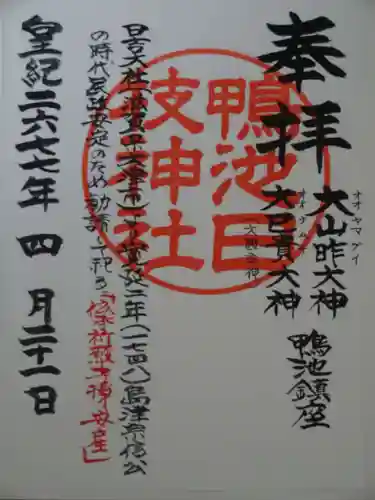 奉拝
オオヤマグイ
大山咋大神
オオナムチ
大巳貴大神
鴨池鎮座
鴨池日枝神社
日吉大社(滋賀県大津市)より寛政二年(一七四八)島津宗信公
の時代民政安定のため勧請し祀る「祈願子授安産」
皇紀二六七七年 四月二十一日